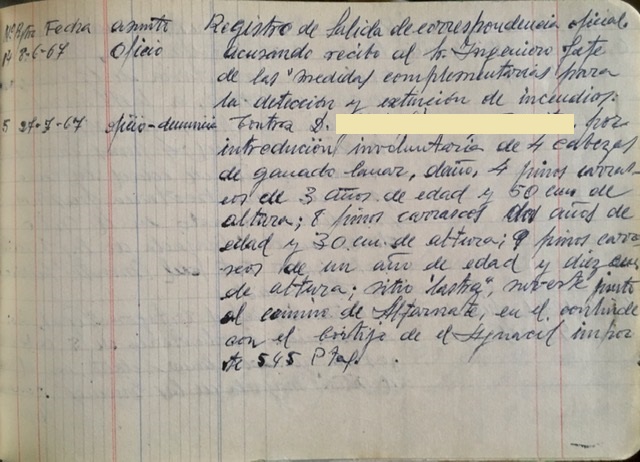 Nº Rtro Fecha asunto Registro de Salida de correspondencia oficial
14 8-6-67 Oficio acusando recibo al Sr. Ingeniero Jefe
de las "medidas complementarias para
la detección y extinción de incendios.
5 27-7-67 oficio-denuncia Contra D. por
introdución involuntaria de 4 cabezas
de ganado lanar, daño, 4 pinos carras-
cos de 3 años de edad y 50 cm de
altura; 8 pinos carrascos dos años de
edad y 30 cm. de altura; 9 pinos carra-
scos de un año de edad y diez cm
de altura; sitio "lastra", junto
al camino de Alfarnate, en el
con el Cortijo de el impor-
te 545 Ptas.